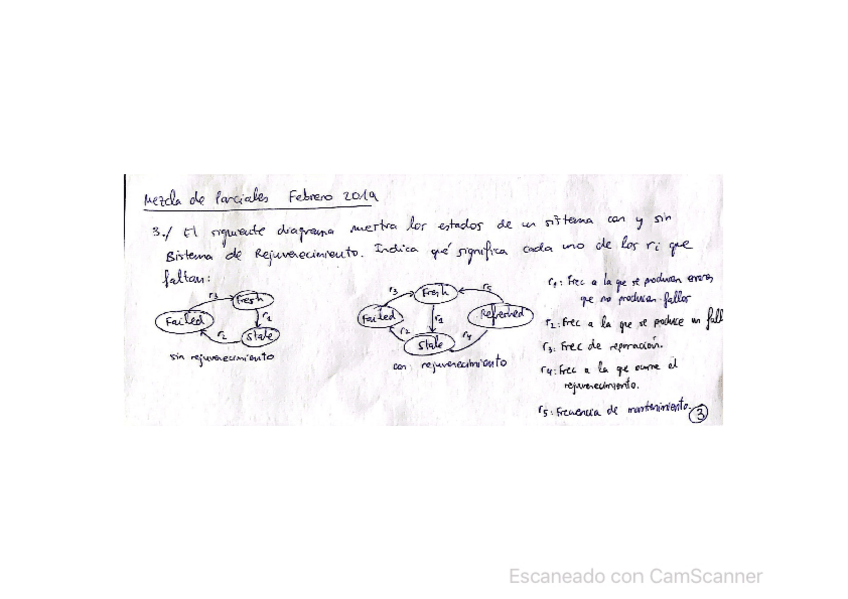 Mezcla de Parciales Febrero 2019
3./ El siguiente diagrama muestra los estados de un sistema con y sin
Sistema de Rejuvenecimiento. Indica qué significa cada uno de los ri que
faltan:
r3 Fresh
r1
Failed
r2 Stale
sin rejuvenecimiento
r3 Fresh r5
Failed r1 Refreshed
r2 Stale r4
con rejuvenecimiento
r1: Frec a la que se producen errores
que no producen fallos
r2: Frec a la que se produce un fall
r3: Frec de reparación.
r4: Frec a la que ocurre el
rejuvenecimiento.
r5: Frecuencia de mantenimiento.
3
Escaneado con CamScanner